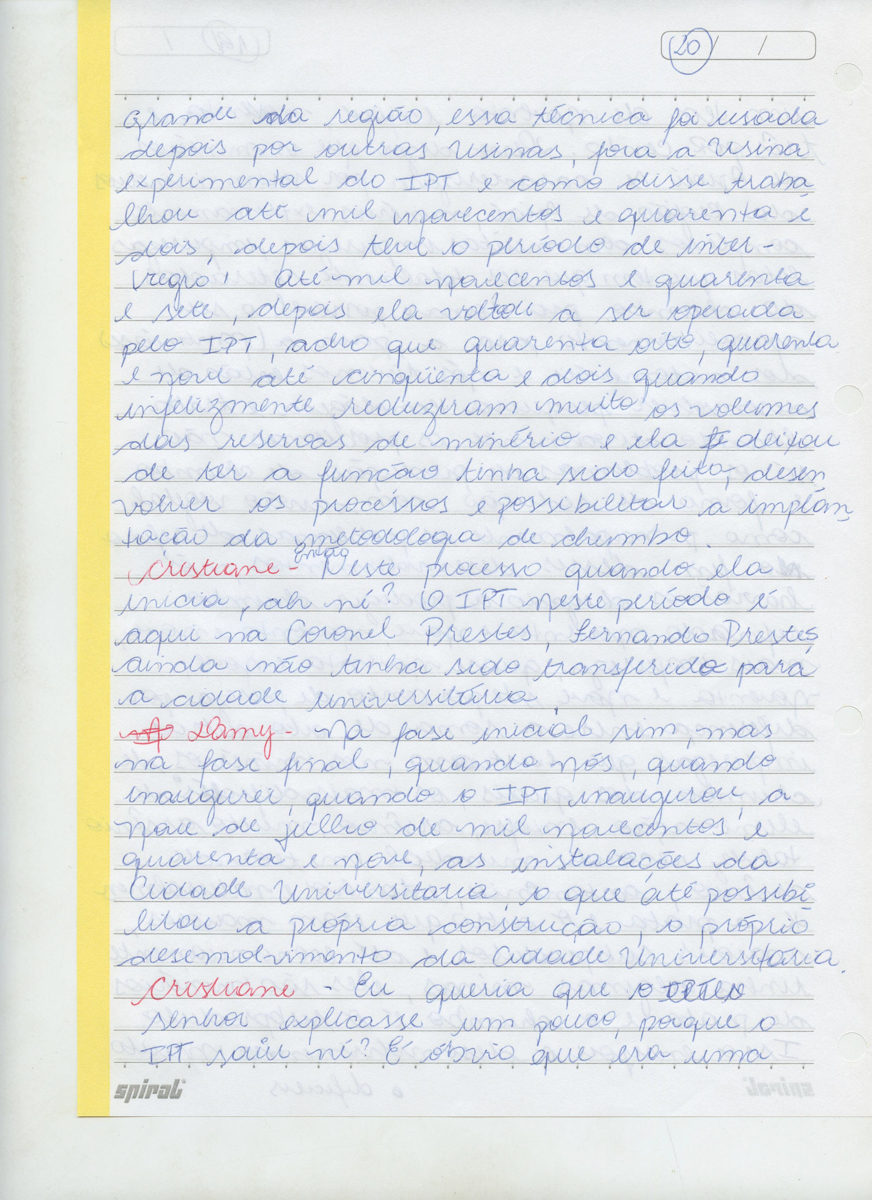 20 / /
Grande da região, essa técnica foi usada
depois por outras Usinas, fora a Usina
experimental do IPT e como disse traba
lhou até mil novecentos e quarenta e
dois, depois teve o período de inter-
regio' até mil novecentos e quarenta
e sete, depois ela voltou a ser operada
pelo IPT, acho que quarenta oito, quarenta
e nove até cinqüenta e dois quando
infelizmente reduziram muito os volumes
das reservas de minério e ela deixou
de ter a função tinha sido feito, desen
volver os procéssos e possibilitar a implan
tação da metodologia de chumbo.
Cristiane - Então Neste processo quando ela
inicia, ah né? O IPT neste período é
aqui na Coronel Prestes, Fernando Prestes
ainda não tinha sido transferido para
a cidade universitária.
Damy - Na fase inicial sim, mas
na fase final, quando nós, quando
inaugurei, quando o IPT inaugurou, a
nove de julho de mil novecentos e
quarenta e nove, as instalações da
Cidade Universitária, o que até possibi
litou a própria construção, o próprio
desenvolvimento da Cidade Universitária.
Cristiane - Eu queria que o
senhor explicasse um pouco, porque o
IPT saiu né? É óbvio que era uma
spiral